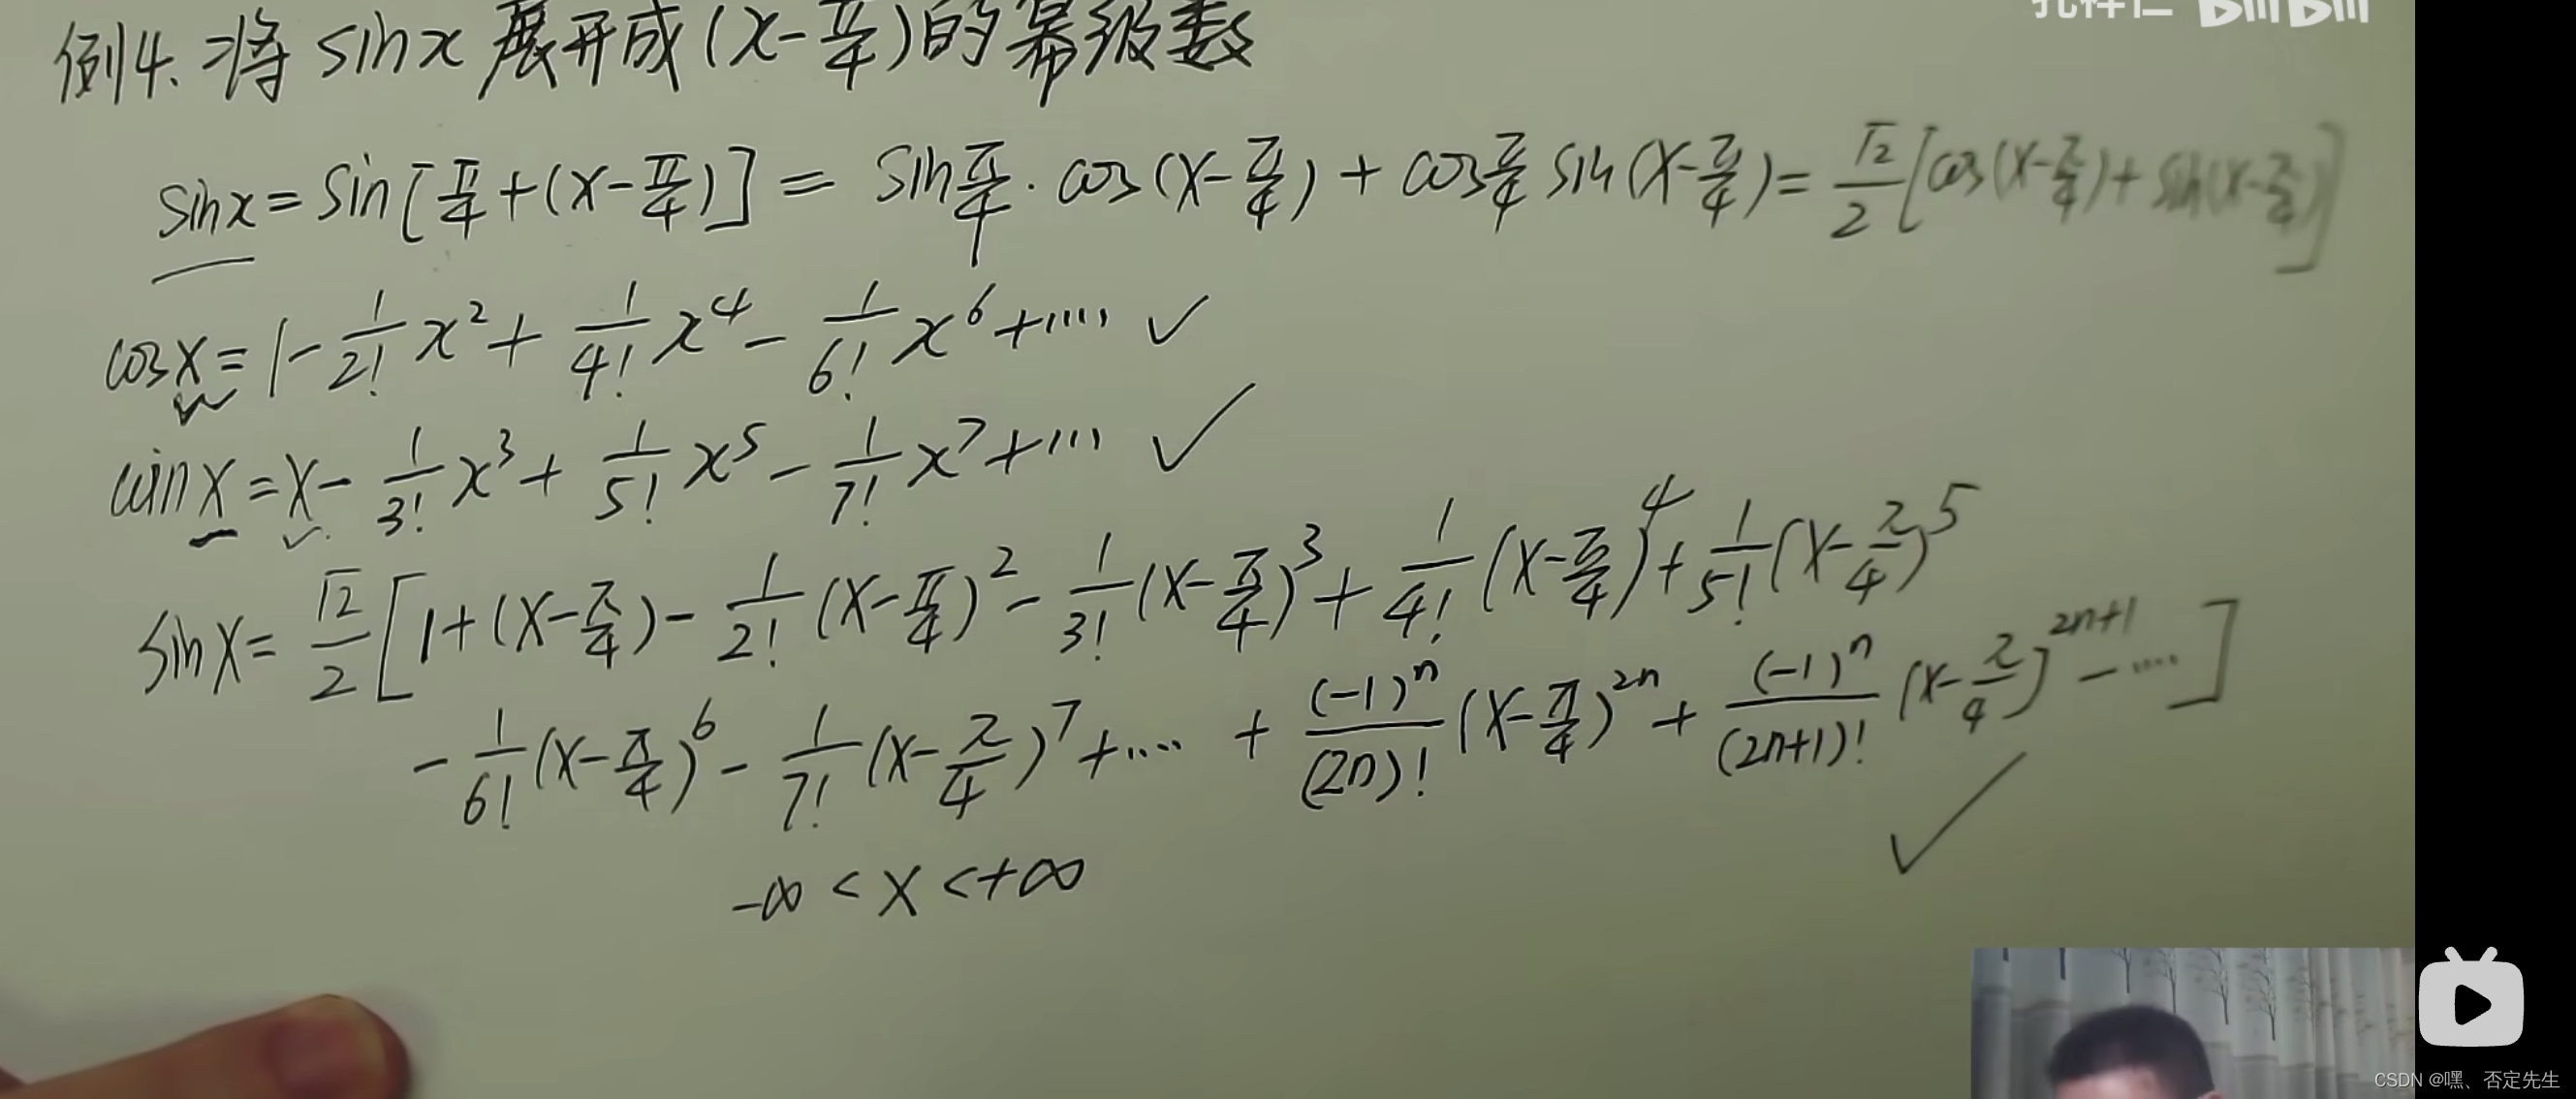 例4. 将 sinx 展开成(x-π/4)的幂级数
sinx = sin[π/4+(x-π/4)] = sinπ/4 · cos(x-π/4) + cosπ/4 sin(x-π/4) = √2/2[cos(x-π/4)+sin(x-π/4)]
cosx = 1 - 1/2! x² + 1/4! x⁴ - 1/6! x⁶ + ···· ✓
sinx = x - 1/3! x³ + 1/5! x⁵ - 1/7! x⁷ + ··· ✓
sinx = √2/2 [1 + (x-π/4) - 1/2! (x-π/4)² - 1/3! (x-π/4)³ + 1/4! (x-π/4)⁴ + 1/5! (x-π/4)⁵
- 1/6! (x-π/4)⁶ - 1/7! (x-π/4)⁷ + ···· + (-1)ⁿ/(2n)! (x-π/4)²ⁿ + (-1)ⁿ/(2n+1)! (x-π/4)²ⁿ⁺¹ - ····] ✓
-∞ < x < +∞
CSDN @嘿、否定先生